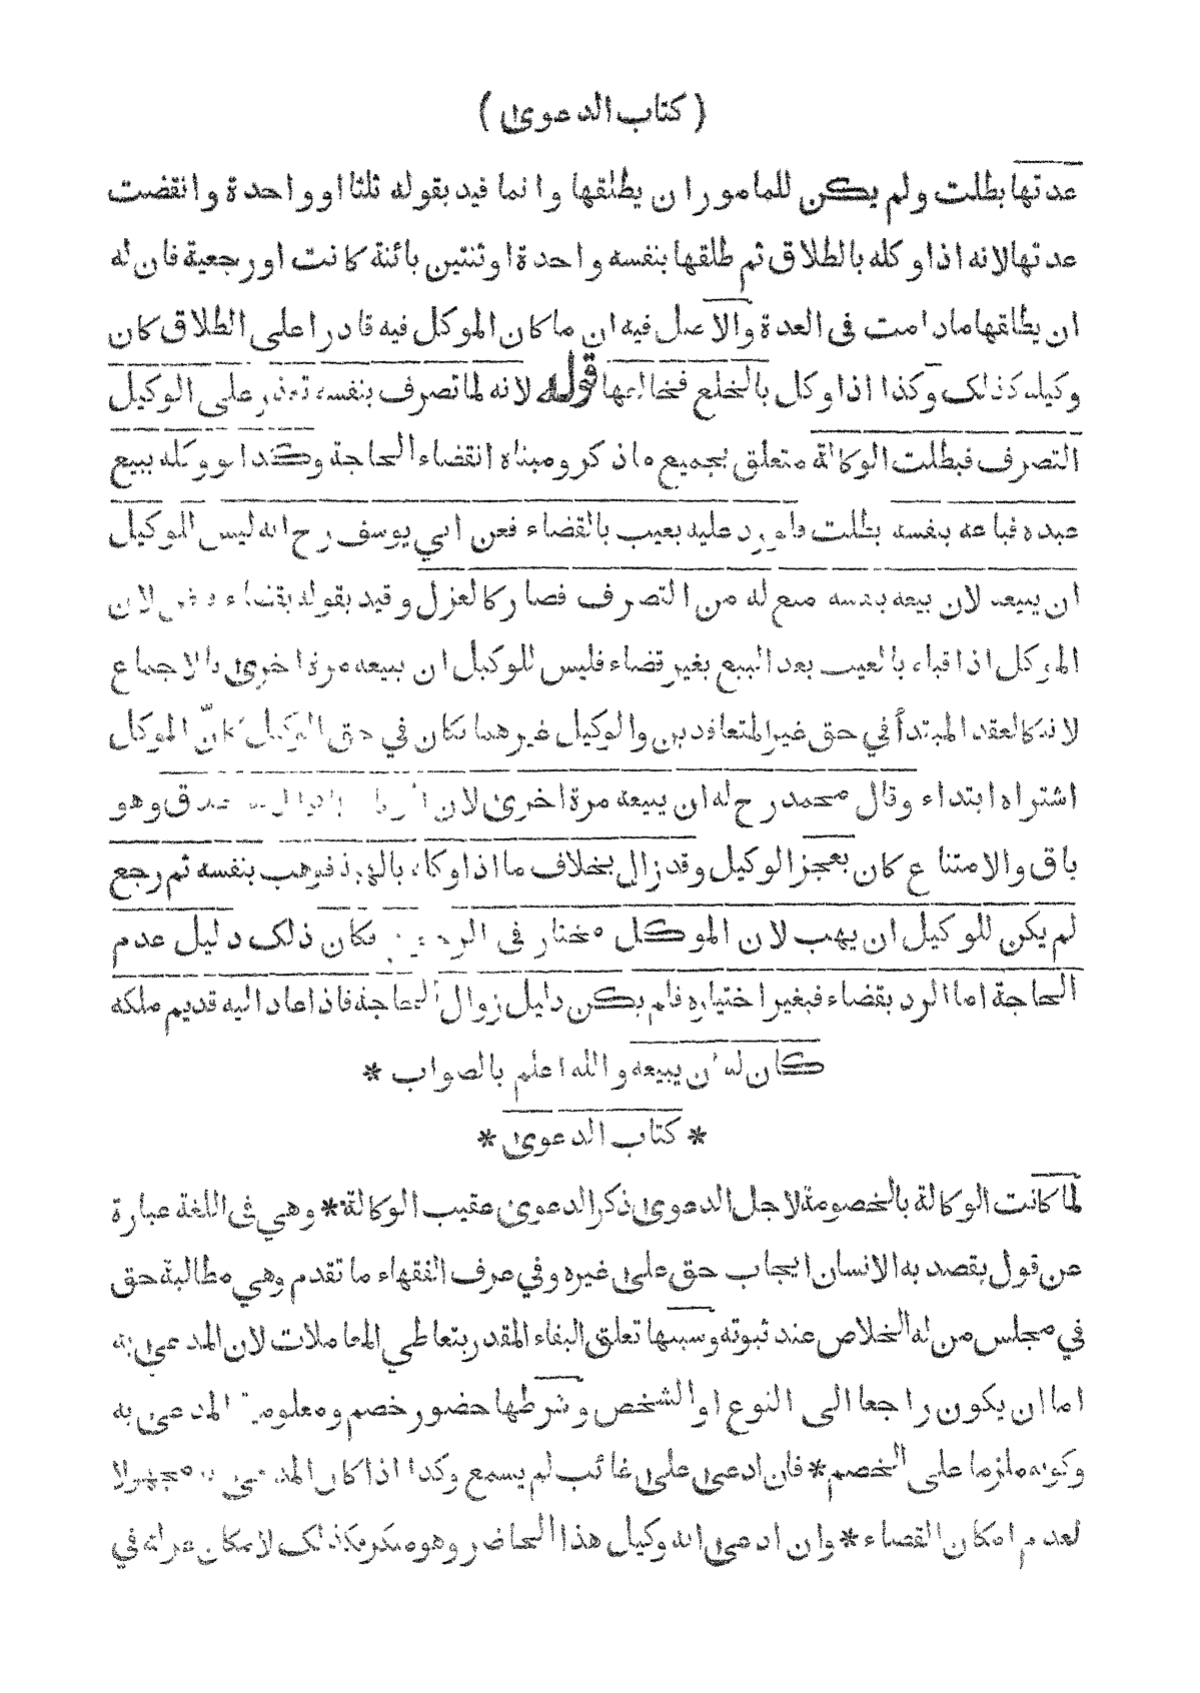 ( كتاب الدعوى )
عدتها بطلت ولم يكن للمامور ان يطلقها وانما قيد بقوله ثلثا او واحدة وانقضت
عدتها لانه اذا وكله بالطلاق ثم طلقها بنفسه واحدة او ثنتين بائنة كانت او رجعية فان له
ان يطلقها مادامت فى العدة والاصل فيه ان ماكان الموكل فيه قادرا على الطلاق كان
وكيله كذلك وكذا اذا وكل بالخلع فخالعها قوله لانه لما تصرف بنفسه تعذر على الوكيل
التصرف فبطلت الوكالة متعلق بجميع ماذكر ومبناه انقضاء الحاجة وكذا لو وكله ببيع
عبده فباعه بنفسه بطلت فلو رد عليه بعيب بالقضاء فعن ابي يوسف رح انه ليس للوكيل
ان يبيعه لان بيعه بنفسه منع له من التصرف فصار كالعزل وقيد بقوله بقضاء لان
الموكل اذا قبله بالعيب بعد البيع بغير قضاء فليس للوكيل ان يبيعه مرة اخرى بالاجماع
لانه كالعقد المبتدأ في حق غير المتعاقدين والوكيل غيرهما فكان في حق الوكيل كانّ الموكل
اشتراه ابتداء وقال محمد رح له ان يبيعه مرة اخرى لان وهو
باق والامتناع كان بعجز الوكيل وقد زال بخلاف ما اذا وكله بالهبة فوهب بنفسه ثم رجع
لم يكن للوكيل ان يهب لان الموكل مختار فى الرجوع فكان ذلك دليل عدم
الحاجة اما الرد بقضاء فبغير اختياره فلم يكن دليل زوال الحاجة فاذا عاد اليه قديم ملكه
كان له ان يبيعه والله اعلم بالصواب *
* كتاب الدعوى *
لما كانت الوكالة بالخصومة لاجل الدعوى ذكر الدعوى عقيب الوكالة * وهي فى اللغة عبارة
عن قول يقصد به الانسان ايجاب حق على غيره وفي عرف الفقهاء ما تقدم وهي مطالبة حق
في مجلس من له الخلاص عند ثبوته وسببها تعلق البقاء المقدر بتعاطي المعاملات لان المدعى به
اما ان يكون راجعا الى النوع او الشخص وشرطها حضور خصم ومعلومية المدعى به
وكونه ملزما على الخصم * فان ادعى على غائب لم يسمع وكذا اذا كان المدعى به مجهولا
لعدم امكان القضاء * وان ادعى انه وكيل هذا الحاضر وهو منكر فكذلك لامكان عزله في